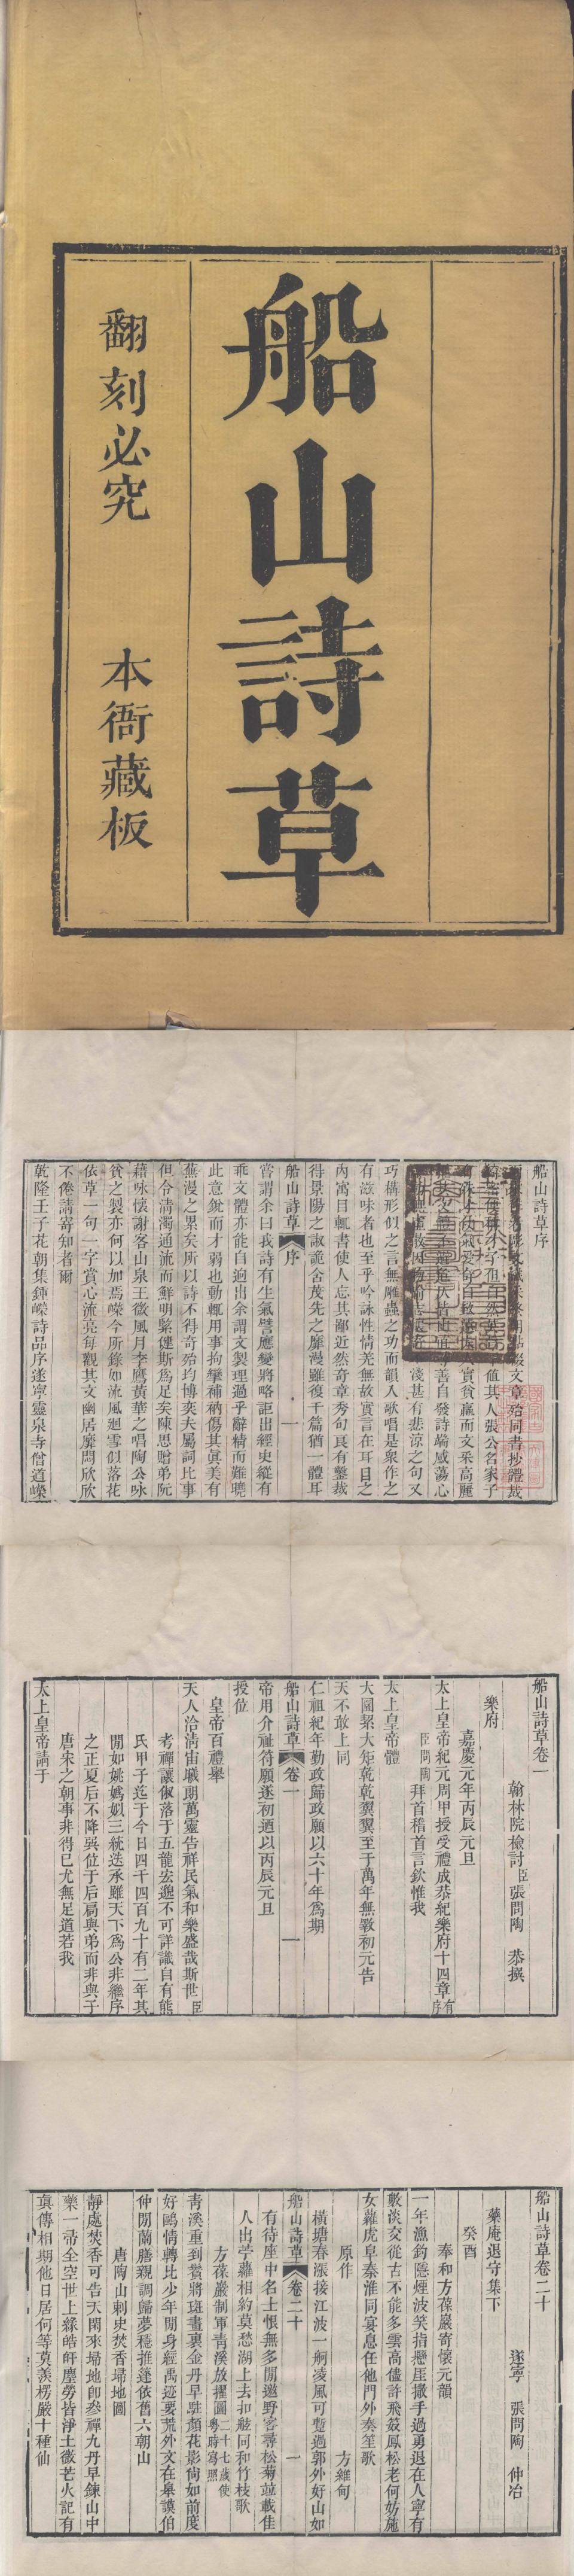 船山詩草
翻刻必究　本衙藏板
船山詩草序
文章殆同書抄體裁
值其人張公名家子
實貧羸而文采高麗
善自發詩騎感蕩心
淺甚有悲涼之句又
巧構形似之言無雕蟲之功而韻入歌唱是衆作之
有滋味者也至乎吟詠性情羌無故實言在耳目之
內寓目輒書使人忘其鄙近然奇章秀句良有鑿裁
得景陽之諔詭含茂先之靡漫雖復千篇猶一體耳
船山詩草　序　一
嘗謂余曰我詩有生氣譬應變將略詎出經史縱有
乖文體亦能自迥出余謂文製理過乎辭精而難曉
此意銳而才弱也動輒用事拘攣補衲傷其眞美有
蕪漫之累矣所以詩不得奇殆均博奕夫屬詞比事
但令淸濁通流而鮮明緊健斯爲足矣陳思贈弟阮
籍咏懷謝客山泉王徽風月李鷹黃華之唱陶公咏
貧之製亦何以加焉嶸今所錄如流風迴雪似落花
依草一句一字賞心流亮每觀其文幽居靡悶欣欣
不倦請寄知者爾
乾隆壬子花朝集鍾嶸詩品序遂寧靈泉寺僧道嶸
船山詩草卷一
翰林院檢討臣張問陶　恭撰
樂府
嘉慶元年丙辰元旦
太上皇帝紀元周甲授受禮成恭紀樂府十四章有序
臣問陶　拜首稽首言欽惟我
太上皇帝體
大圜絜大矩乾乾翼翼至于萬年無斁初元告
天不敢上同
仁祖紀年勤政歸政願以六十年爲期
船山詩草　卷一　一
帝用介祉符願遂初迺以丙辰元旦
授位
皇帝百禮舉
天人洽淸宙堿朗萬靈告祥民氣和樂盛哉斯世臣
考禪讓俶落于五龍宏邈不可詳識自有熊
氏甲子迄于今日四千四百九十有二年其
閒如姚嬀姒三統迭承雖天下爲公非繼序
之正夏后不降巽位于后扃與弟而非與子
唐宋之朝事非得已尤無足道若我
太上皇帝請于
船山詩草卷二十
遂寧　張問陶　仲冶
藥庵退守集下
癸酉
奉和方葆巖寄懷元韻
一年漁釣隱煙波笑指懸厓撒手過勇退在人寧有
數淡交從古不能多雲高儘許飛茲鳳松老何妨施
女蘿虎阜秦淮同宴息任他門外奏笙歌
原作　方維甸
橫塘春漲接江波一舸凌風可蹔過郭外好山如
船山詩草　卷二十　一
有待座中名士恨無多閒邀野客尋松菊竝載佳
人出苧蘿相約莫愁湖上去扣舷同和竹枝歌
方葆巖制軍靑溪放擢圖二十七歲使粵時寫照
靑溪重到鬢將斑畫裏金丹早駐顏花影尙如前度
好鷗情轉比少年閒身經禹迹要荒外文在皋謨伯
仲閒蘭膳親調歸夢穩推篷依舊六朝山
唐陶山刺史焚香埽地圖
靜處焚香可告天閑來埽地卽參禪九丹早鍊山中
藥一帚全空世上緣皓皓塵勞皆淨土微芒火記有
眞傳相期他日居何等莫羨楞嚴十種仙